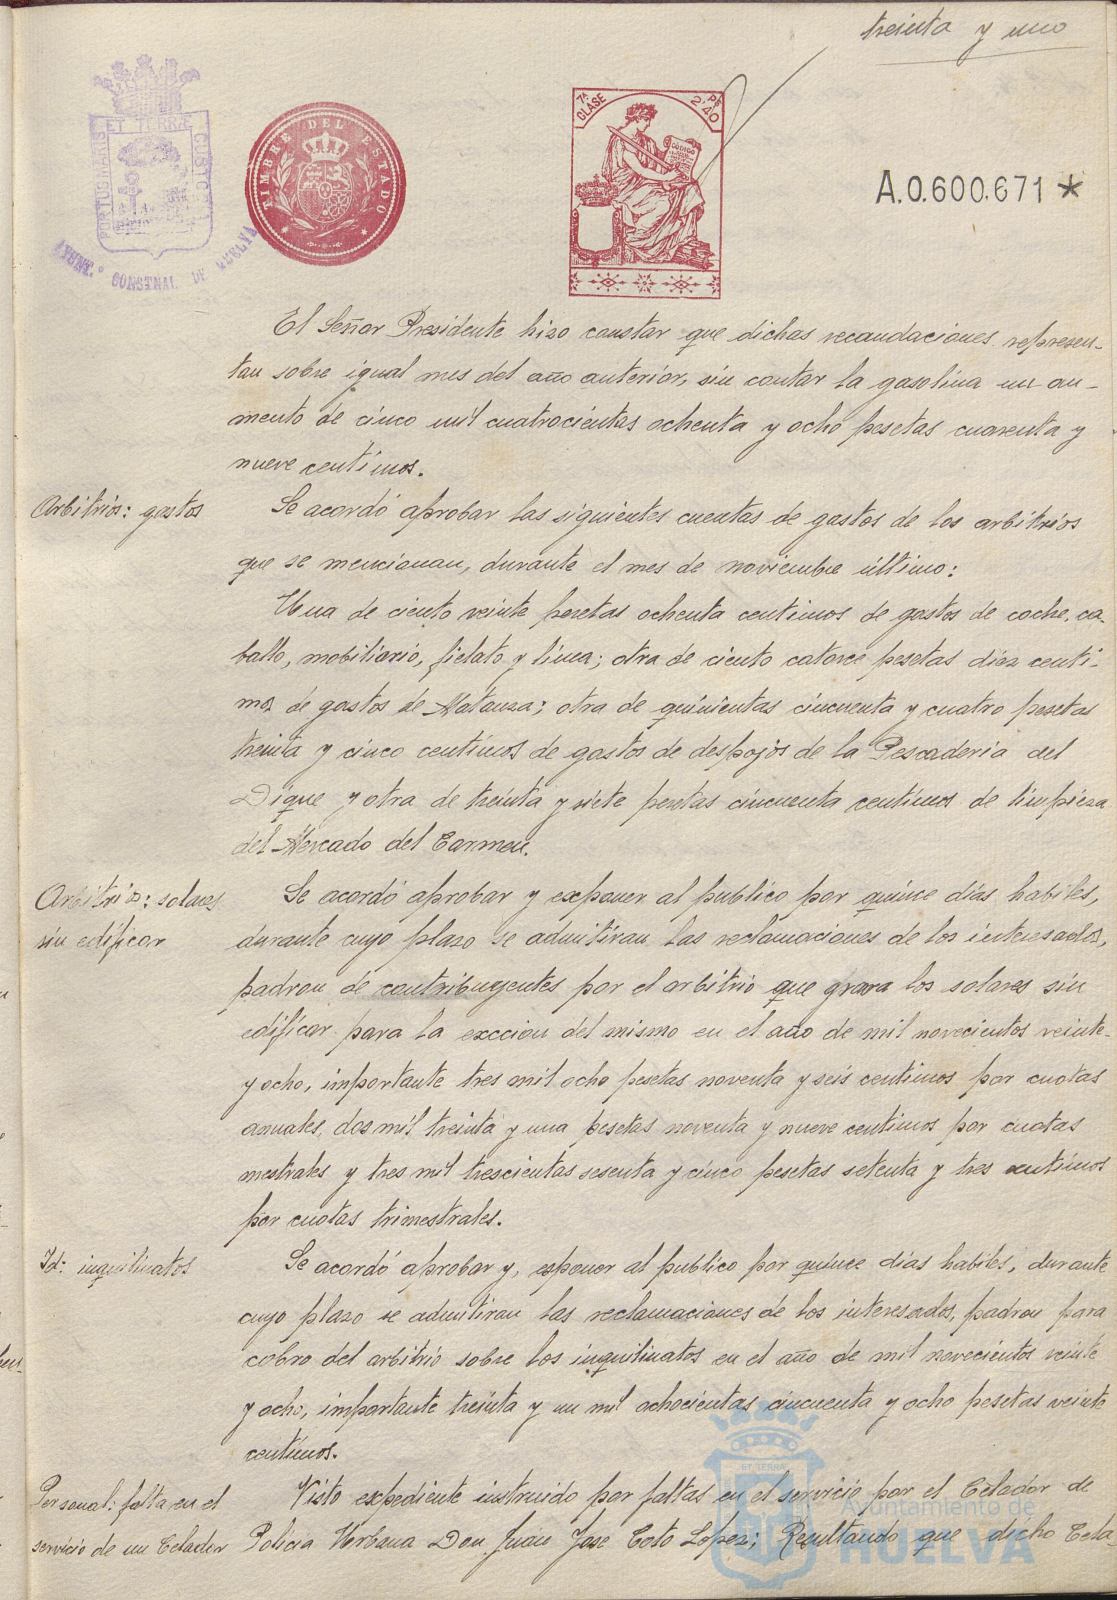 treinta y uno
PORTUS MARIS ET TERRÆ CUSTODIA
AYUNT.º CONST.NAL DE HUELVA
TIMBRE DEL ESTADO
7ª CLASE
Pts 2'40
CODIGO
A.0.600.671 *
El Señor Presidente hizo constar que dichas recaudaciones represen-
tan sobre igual mes del año anterior, sin contar la gasolina un au-
mento de cinco mil cuatrocientas ochenta y ocho pesetas cuarenta y
nueve centimos.
Arbitrios: gastos
Se acordó aprobar las siguientes cuentas de gastos de los arbitrios
que se mencionan, durante el mes de noviembre último:
Una de ciento veinte pesetas ochenta centimos de gastos de coche, ca-
ballo, mobiliario, fielato y linea; otra de ciento catorce pesetas diez centi-
mos de gastos de Matanza; otra de quinientas cincuenta y cuatro pesetas
treinta y cinco centimos de gastos de despojos de la Pescaderia del
Dique y otra de treinta y siete pesetas cincuenta centimos de limpieza
del Mercado del Carmen.
Arbitrios: solares
sin edificar
Se acordó aprobar y exponer al publico por quince dias habiles,
durante cuyo plazo se admitiran las reclamaciones de los interesados,
padron de contribuyentes por el arbitrio que grava los solares sin
edificar para la exccion del mismo en el año de mil novecientos veinte-
y ocho, importante tres mil ocho pesetas noventa y seis centimos por cuotas
anuales, dos mil treinta y una pesetas noventa y nueve centimos por cuotas
mestrales y tres mil trescientas sesenta y cinco pesetas setenta y tres centimos
por cuotas trimestrales.
Id: inquilinatos
Se acordó aprobar y, esponer al publico por quince dias habiles, durante
cuyo plazo se admitiran las reclamaciones de los interesados, padron para
cobro del arbitrio sobre los inquilinatos en el año de mil novecientos veinte
y ocho, importante treinta y un mil ochocientas cincuenta y ocho pesetas veinte
centimos.
Personal: falta en el
servicio de un Celador
Visto expediente instruido por faltas en el servicio por el Celador de
Policia Urbana Don Juan Jose Coto Lopez; Resultando que dicho Cela-
ET TERRA
Ayuntamiento de
HUELVA